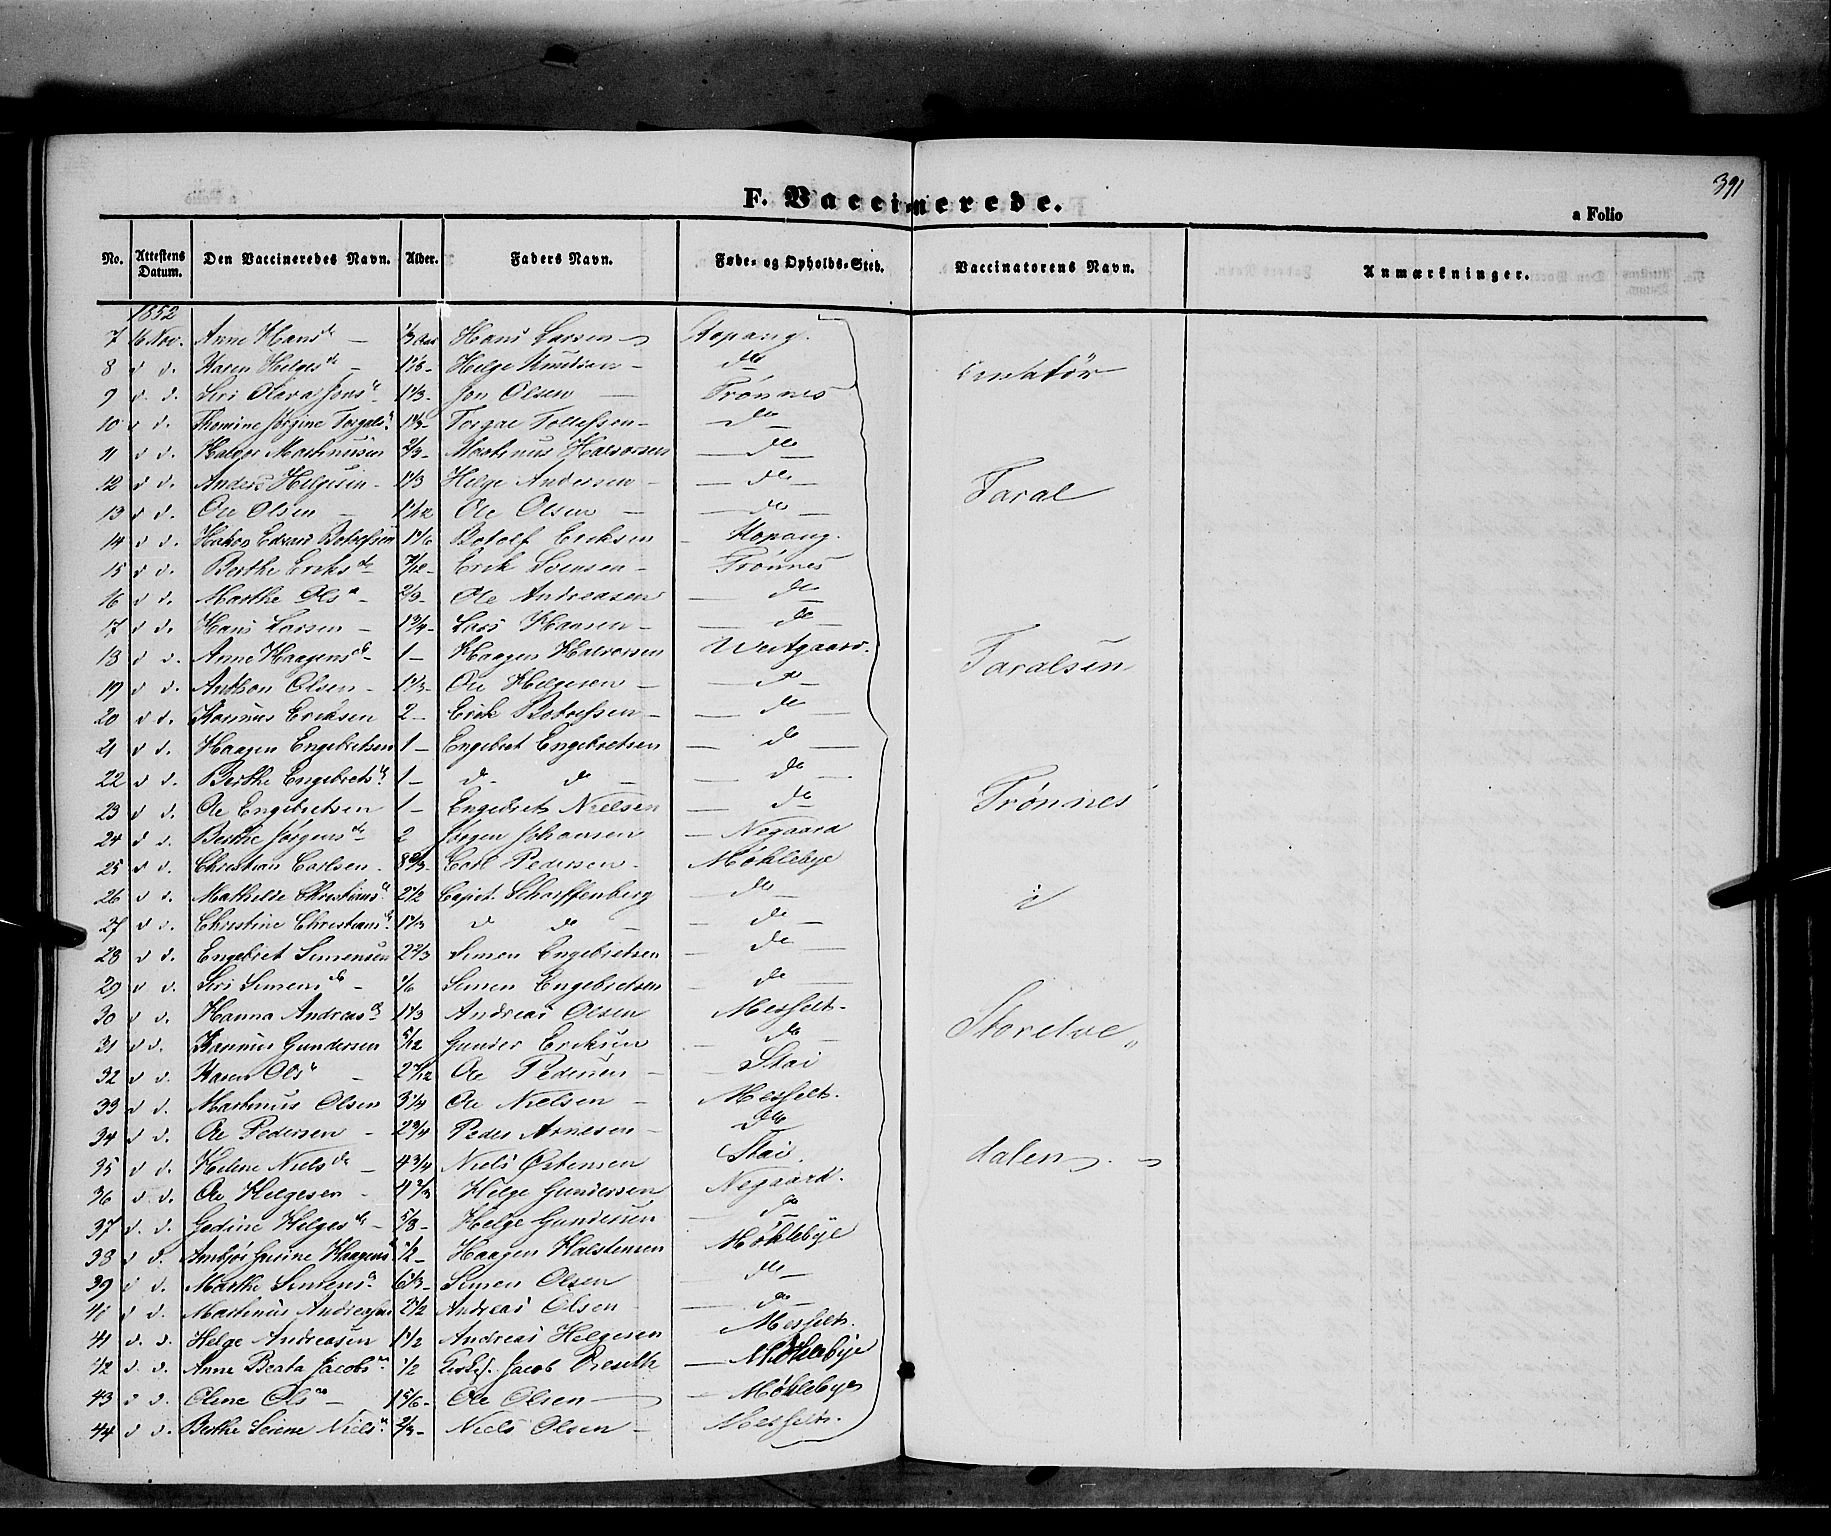 391
F. Vaccinerede.
a Folio
No. Attestens Datum. Den Vaccineredes Navn. Alder. Faders Navn. Føde- og Opholds-Sted. Vaccinatorens Navn. Anmærkninger.
1852
7 16 Nov. Anne Hansd. — 1/3 Aar Hans Larsen Kopang.
8 d d. Karen Helgesd. — Helge Knudsen — do
9 d. d. Siri Jonsd. 1 1/3 - Jon Olsen — Trønnes
10 d d. Jørgine 1 1/3 - — do
11 d d. Helge Martinusen 2/3 - Martinus Halvorsen — do —
12 d d. Anders Helgesen - 1 1/3 Helge Andersen — — do —
13 d d. Ole Olsen — 1 1/12 Ole Olsen — — do —
14 d d. 1 1/6 Botolf Eriksen - Kopang.
15 d d. Berthe Eriksd. 7/12 - Erik Svensen - Trønnes
16 d d. Marthe Olsd. - 2/3 - Ole Andreasen — do —
17 d d. Hans Larsen — 1 3/4 - Lars Hansen — — do —
18 d d. Anne Haagensd. - 1 — Haagen Halvorsen Westgaard.
19 d d. Anthon Olsen - 1 1/3 - Ole Helgesen — — do —
20 d d. Rasmus Eriksen 2 — Erik Botolfsen — — do —
21 d d. Haagen Engebretsen 1 — Engebret Engebretsen — do —
22 d d. Berthe Engebretsd. 1 — do do — — do —
23 d d. Ole Engebretsen 1 — Engebret Nielsen — do
24 d d. Berthe Jørgensd. 2 Jørgen Johansen — Negaard
25 d d. Christian Carlsen - 8 2/3 - Carl Pedersen - Møklebye
26 d d. Mathilde Christiansd. 2 1/2 Capit. Scharffenberg — do —
27 d d. Christine Christiansd. 1 1/3 d do — — do —
28 d d. Engebret Simensen 2 2/3 Simen Engebretsen — do —
29 d d. Siri Simensd. - 1/6 Simen Engebretsen — do —
30 d d. Hanna Andreasd. 1 1/3 Andreas Olsen Messelt.
31 d d. Rasmus Gundersen 5/12 Gunder Eriksen — do —
32 d d. Karen Olsd. — Ole Pedersen — — Stai
33 d d. Martinus Olsen 3 1/4 Ole Nielsen — Messelt.
34 d d. Ole Pedersen - 2 3/4 Peder Arnesen — do
35 d d. Helene Nielsd. — 4 3/4 Niels Østensen Stai.
36 d d. Ole Helgesen - 4 2/3 Helge Gundersen Negaard.
37 d. d. Gedine Helgesd. - 5/8 - Helge Gundersen — do
38 d d. Haagensd. 1/2 — Haagen Halstensen Møklebye
39 d d. Marthe Simensd. 6 1/3 - Simen Olsen do —
40 d d. Martinus Andreassen 2 1/2 Andreas Olsen — do —
41 d. d. Helge Andreasen 1 1/2 Andreas Helgesen — Messelt.
42 d. d. Anne Beata Jacobsd. 1/2 Jacob — Møklebye
43 d d. Olene Olsd. — 1 5/6 - Ole Olsen — — Møklebye
44 d d. Berthe Serine Nielsd. 2/3 - Niels Olsen — Messelt.
Taral
Taralsen
Trønnes
i
Storelve„
dalen.